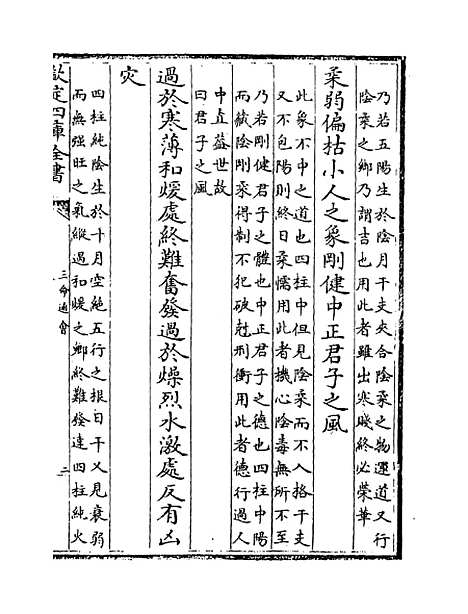 乃若五陽生於陰月干支夾合陰柔之物運道又行
陰柔之鄉乃謂吉也用此者雖出寒賤終必榮華
柔弱偏枯小人之象剛健中正君子之風
此象不中之道也四柱中但見陰柔而不入格干支
又不包陽則終日柔懦用此者機心陰毒無所不至
乃若剛健君子之體也中正君子之德也四柱中陽
而藏陰剛柔得制不犯破尅刑衝用此者德行過人
中直益世故
曰君子之風
過於寒薄和煖處終難奮發過於燥烈水激處反有凶
灾
四柱純陰生於十月空絶五行之根日干又見衰弱
而無強旺之氣縱遇和煖之鄉終難發達四柱純火
欽定四庫全書
三命通會
二